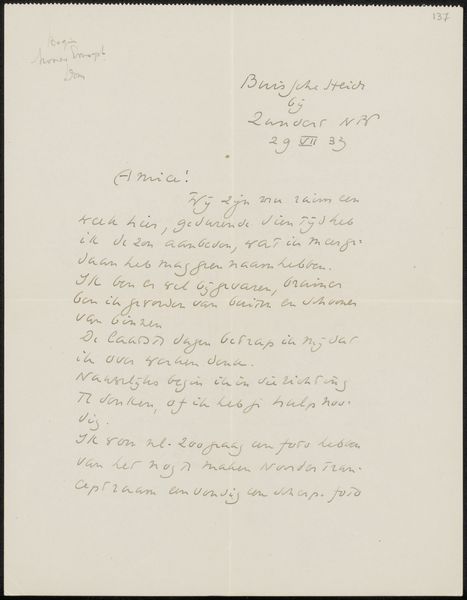 137
Buissche Heide
bij
Zundert NB
29 VII 33
Amice!
Wij zijn nu ruim een
week hier, gedurende dien tijd heb
ik de zon aanbeden, wat ik meege-
daan heb mag geen naam hebben.
Ik ben er wel bij gevaren, bruiner
ben ik geworden van buiten en schooner
van binnen
De laatste dagen betrap ik mij dat
ik over werken denk.
Nauwelijks begin ik in die richting
te denken, of ik heb je hulp noo-
dig.
Ik wou nl. zoo graag een foto hebben
van het nog te maken Noorder Tran-
septraam eenvoudig een scherp. foto